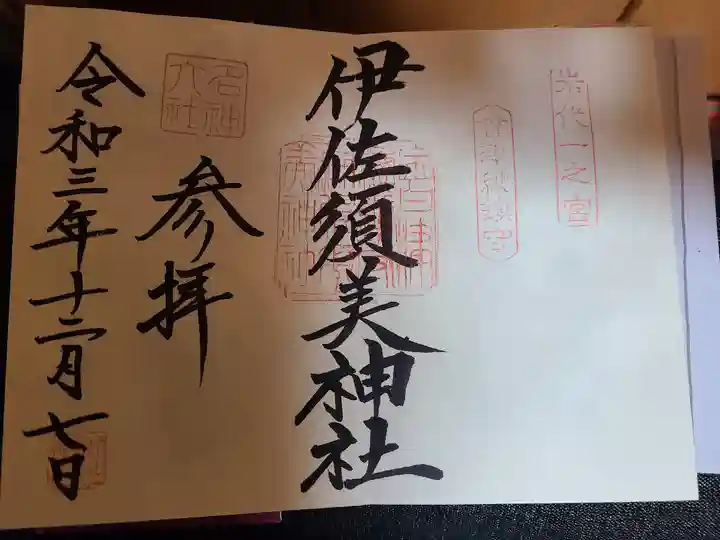 岩代一之宮
伊佐須美神社
参拝
名神大社
令和三年十二月七日